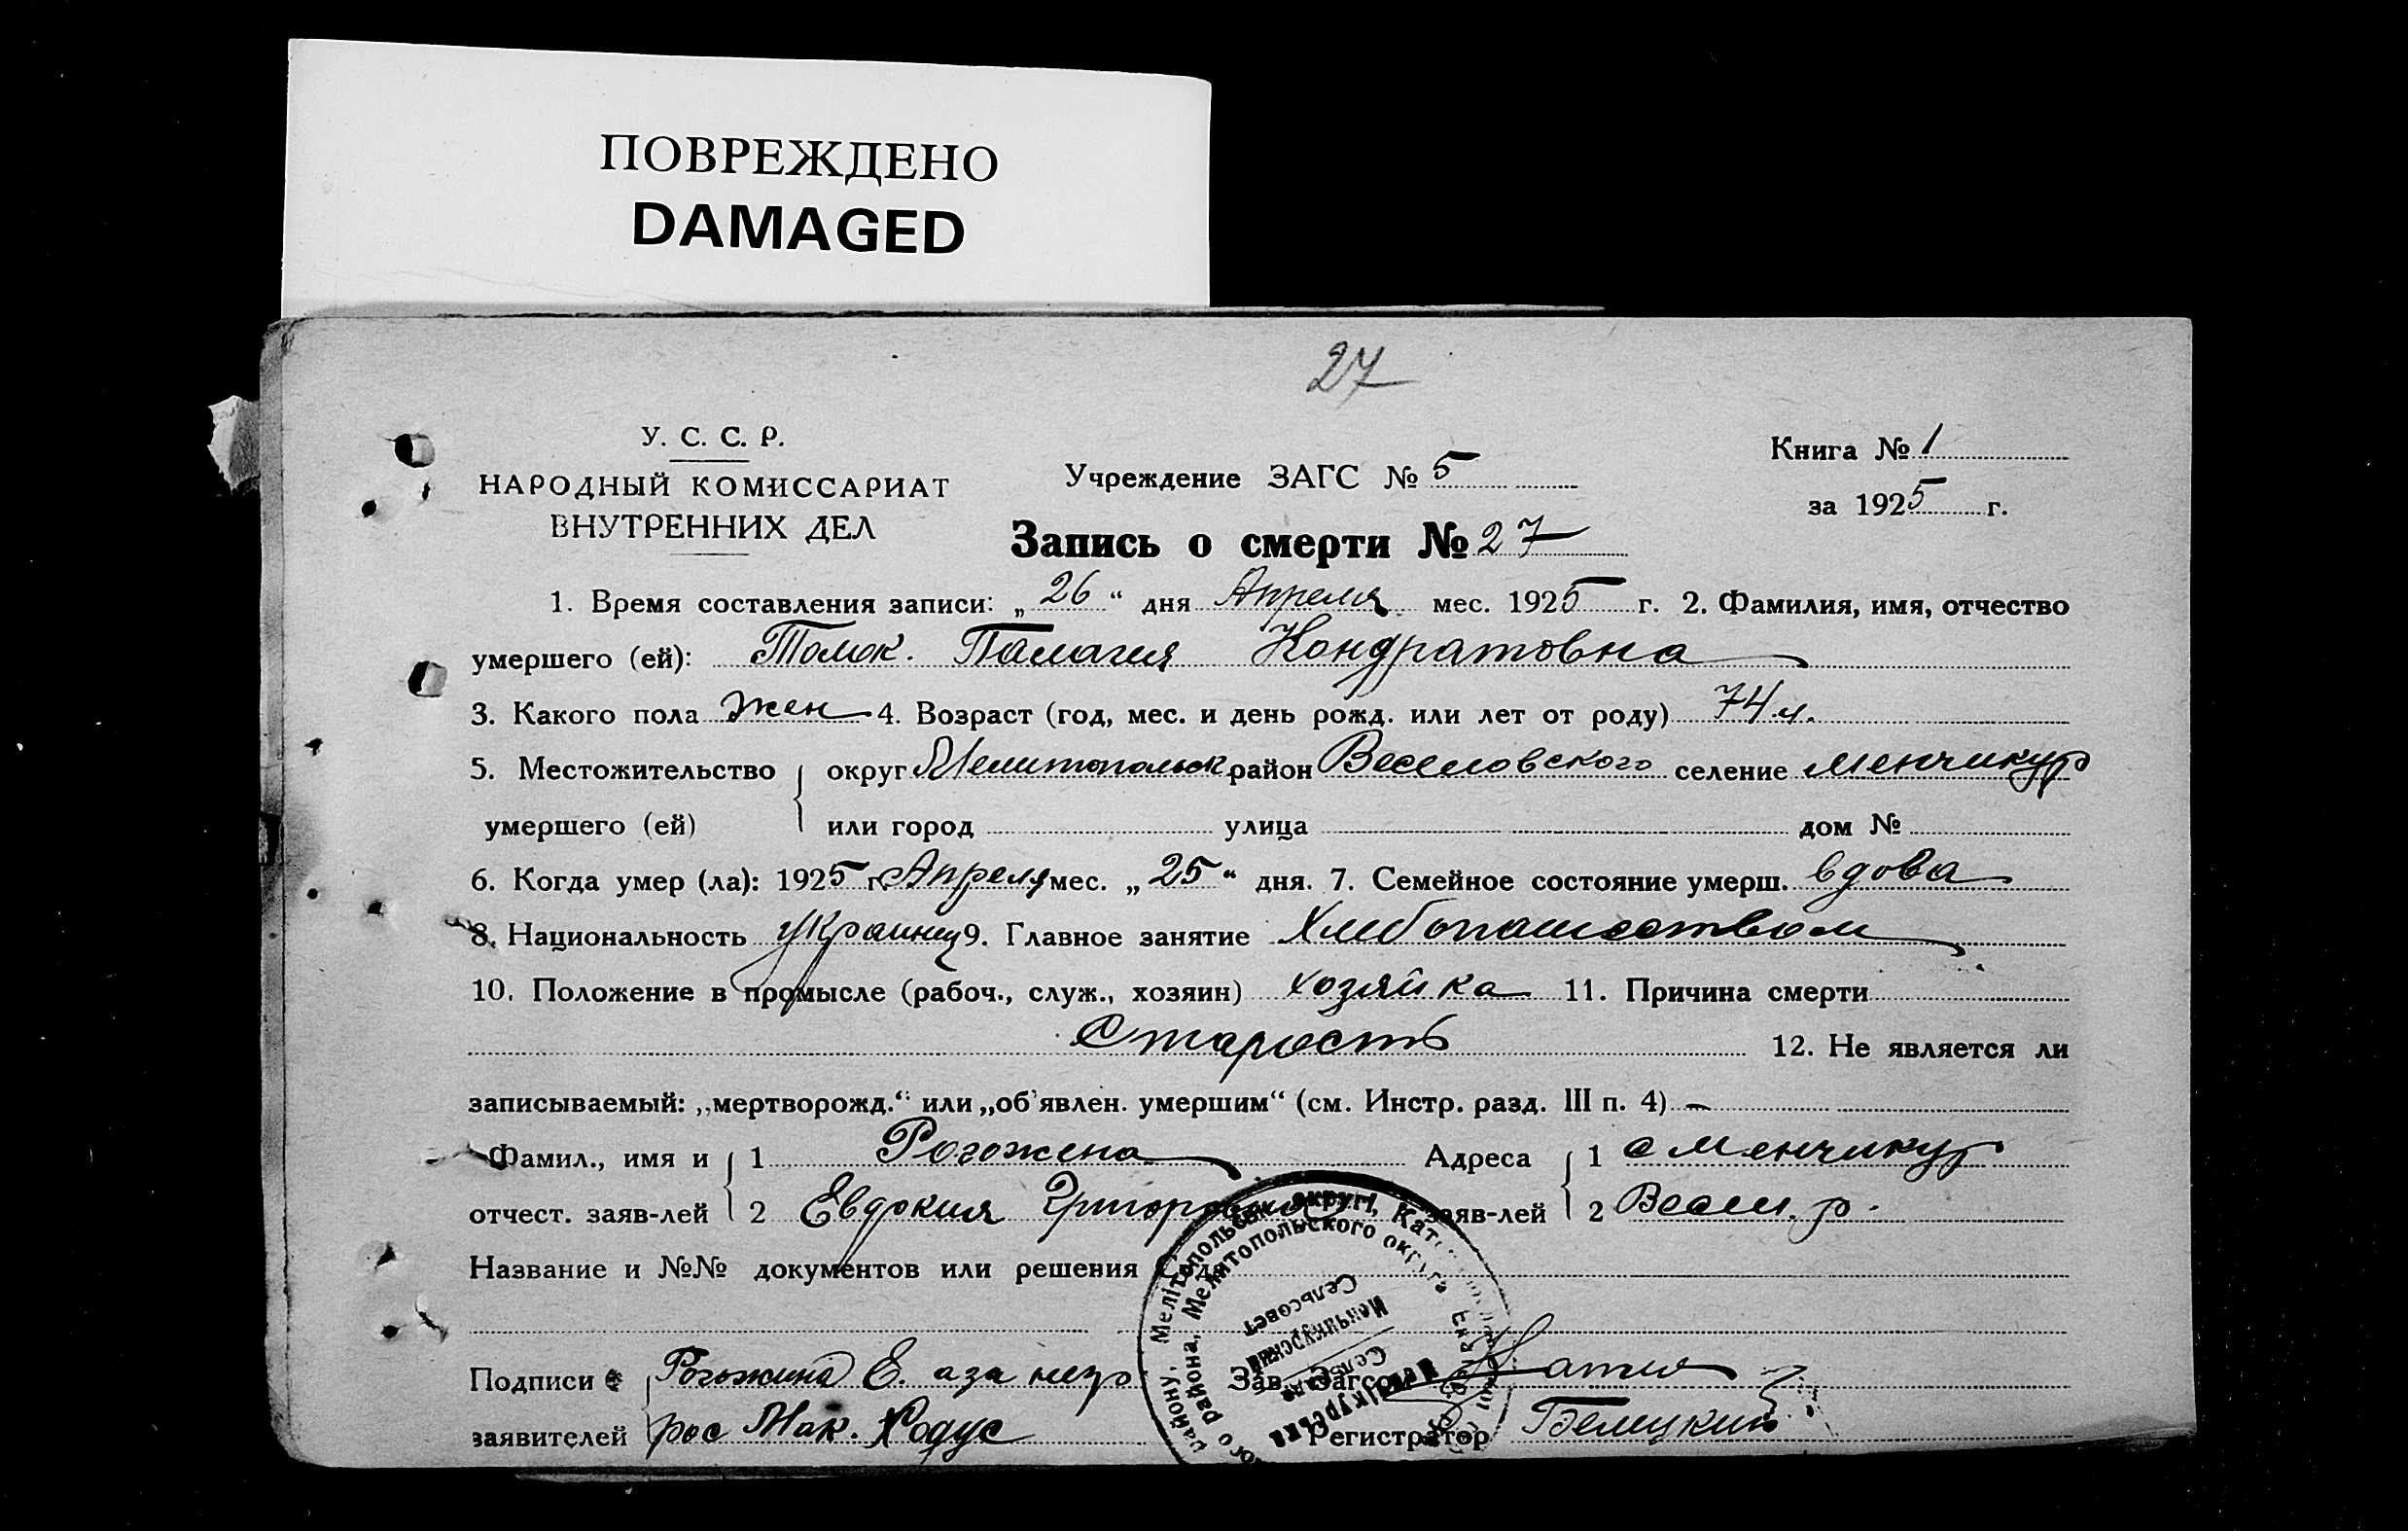 ПОВРЕЖДЕНО
DAMAGED
27
У. С. С. Р.
НАРОДНЫЙ КОМИССАРИАТ
ВНУТРЕННИХ ДЕЛ
Учреждение ЗАГС № 5
Книга № 1
за 1925 г.
Запись о смерти № 27
1. Время составления записи: „26“ дня Апреля мес. 1925 г. 2. Фамилия, имя, отчество
умершего (ей): Толок. Палагия Кондратовна
3. Какого пола жен 4. Возраст (год, мес. и день рожд. или лет от роду) 74 л.
5. Местожительство округ Мелитопольск район Веселовского селение Менчикур
умершего (ей) или город улица дом №
6. Когда умер (ла): 1925 г. Апреля мес. „25“ дня. 7. Семейное состояние умерш. вдова
8. Национальность украинц 9. Главное занятие Хлебопашеством
10. Положение в промысле (рабоч., служ., хозяин) хозяйка 11. Причина смерти
Старость 12. Не является ли
записываемый: „мертворожд.“ или „об'явлен. умершим“ (см. Инстр. разд. III п. 4) —
Фамил., имя и 1 Рогожена Адреса 1 с Менчикур
отчест. заяв-лей 2 Евдокия Григоровна заяв-лей 2 Весел. р.
Название и №№ документов или решения Суда
Подписи Рогожина Е. а за негр Зав. Загсом
заявителей рос Мак. Ходус Регистратор Белицкий
Мелітопольськ. округі, Кат
района, Мелитопольского округа
Менчикурский
Сельсовет